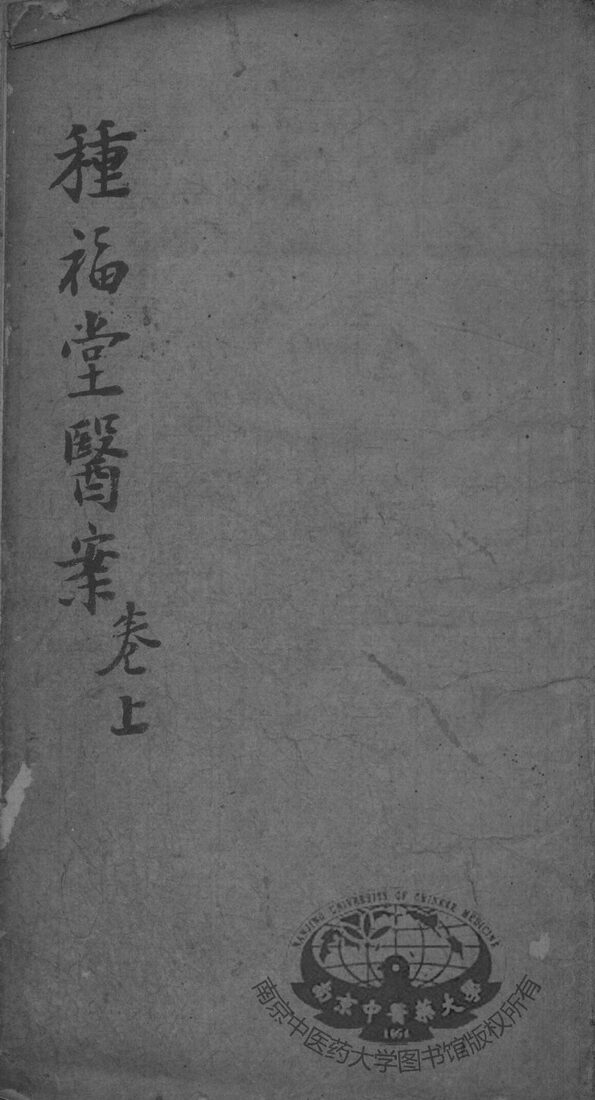 種福堂醫案
卷上
NANJING UNIVERSITY OF CHINESE MEDICINE
南京中醫藥大學
1954
南京中医药大学图书馆版权所有